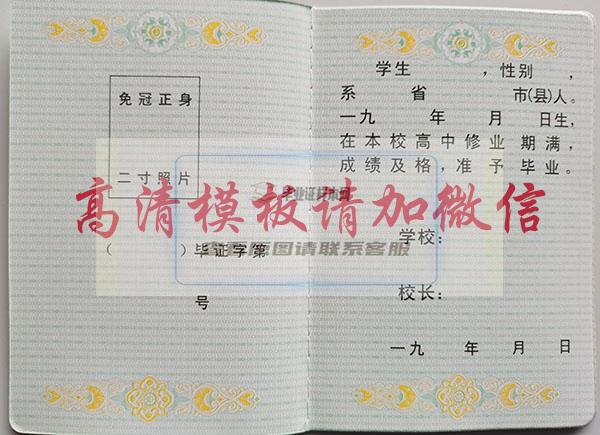 免冠正身
二寸照片
（ ）毕证字第
号
学生 ，性别 ，
系 省 市(县)人。
一九 年 月 日生，
在本校高中修业 期满，
成绩及格，准予毕业。
学校：
校长：
一九 年 月 日
高清模板请加微信
图请联系客服